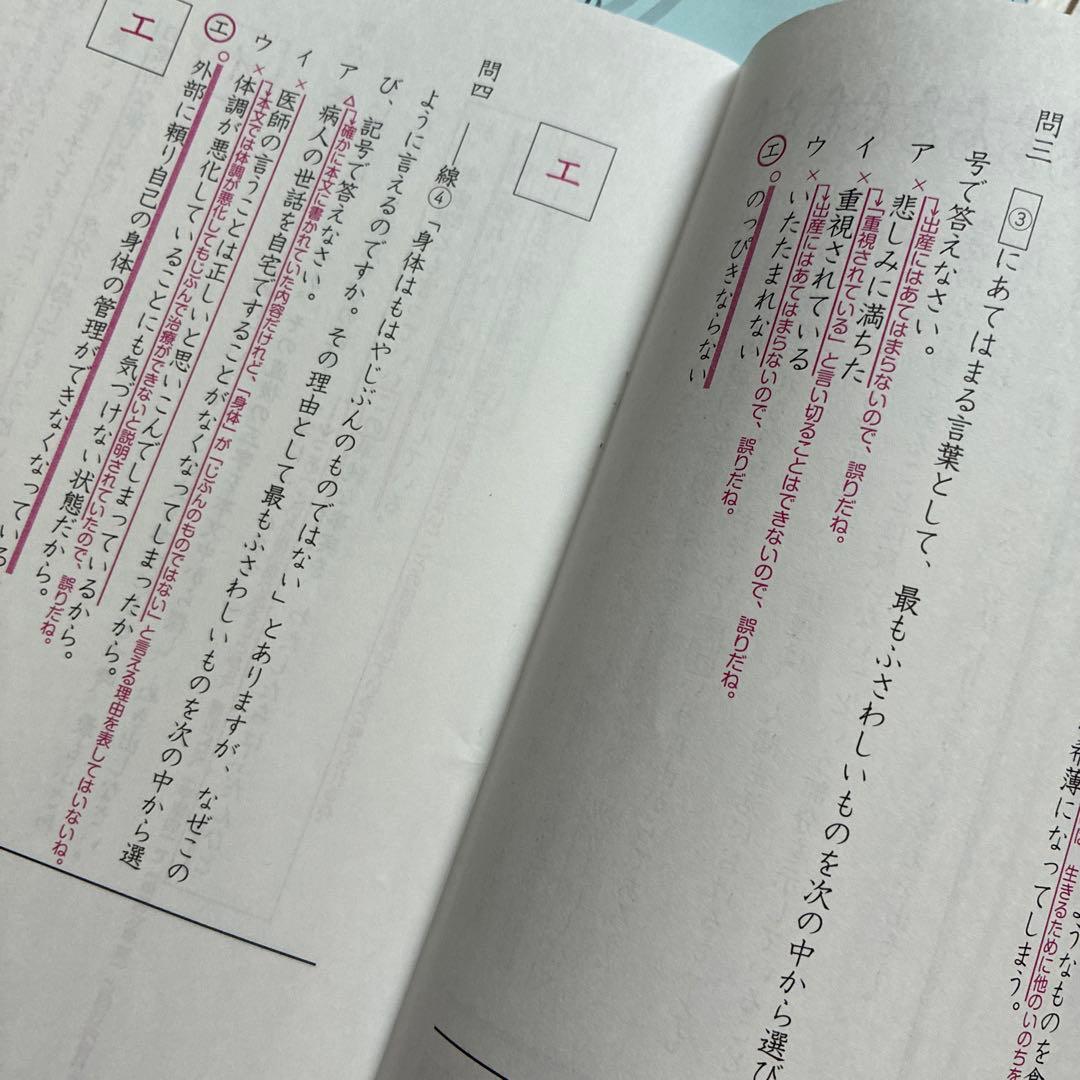 生きるために他のいのちを
ようなものを食
希薄になってしまう。
問三 ③にあてはまる言葉として、最もふさわしいものを次の中から選び
号で答えなさい。
ア 悲しみに満ちた
×出産にはあてはまらないので、誤りだね。
イ 重視されている
×「重視されている」と言い切ることはできないので、誤りだね。
ウ いたたまれない
×出産にはあてはまらないので、誤りだね。
エ のっぴきならない
エ
問四 ――線④「身体はもはやじぶんのものではない」とありますが、なぜこの
ように言えるのですか。その理由として最もふさわしいものを次の中から選
び、記号で答えなさい。
ア 病人の世話を自宅ですることがなくなってしまったから。
△確かに本文に書かれていた内容だけれど、「身体」が「じぶんのものではない」と言える理由を表してはいないね。
イ 医師の言うことは正しいと思いこんでしまっているから。
×
ウ 体調が悪化していることにも気づけない状態だから。
×本文では体調が悪化してもじぶんで治療ができないと説明されていたので、誤りだね。
エ 外部に頼り自己の身体の管理ができなくなっている
エ